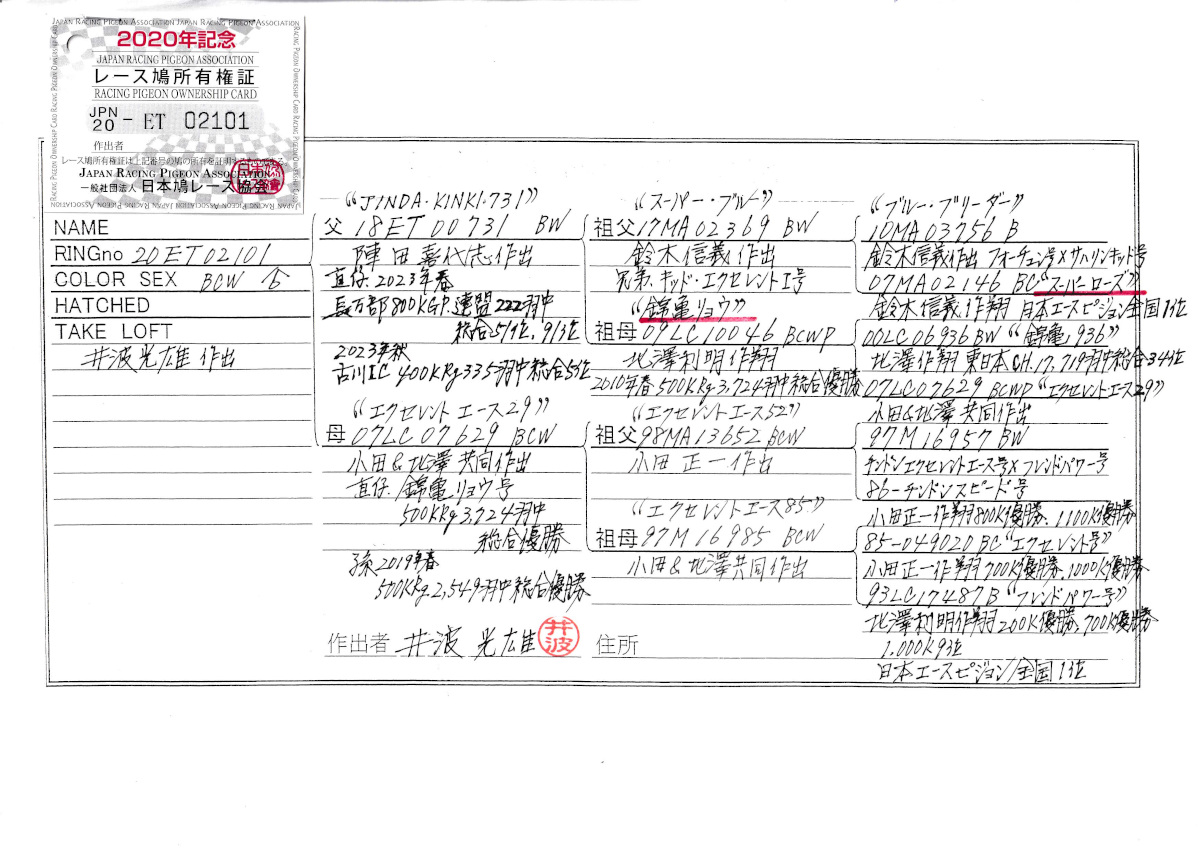 JAPAN RACING PIGEON ASSOCIATION JAPAN RACING PIGEON ASSOCIATION
2020年記念
JAPAN RACING PIGEON ASSOCIATION
レース鳩所有権証
RACING PIGEON OWNERSHIP CARD
JPN 20 - ET 02101
作出者
レース鳩所有権証は上記番号の鳩の所有を証明するものである
JAPAN RACING PIGEON ASSOCIATION
一般社団法人 日本鳩レース協会
NAME
RINGno 20ET02101
COLOR SEX BCW ♂
HATCHED
TAKE LOFT
井波光雄 作出
“JINDA・KINKI・731”
父 18ET00731 BW
陣田喜代志作出
直仔 2023年春
長万部800KGP.連盟222羽中
総合5位, 9位
2023年秋
古川IC 400KRg335羽中総合5位
“エクセレントエース29”
母 07LC07629 BCW
小田&北澤 共同作出
直仔. 錦亀リョウ号
500KRg3,724羽中
総合優勝
孫2019年春
500KRg2,549羽中総合優勝
作出者 井波 光雄 井波
“スーパー・ブルー”
祖父 17MA02369 BW
鈴木信義作出
兄弟.キッド・エクセレントI号
“錦亀リョウ”
祖母 09LC10046 BCWP
北澤利明作翔
2010年春500KRg3,724羽中総合優勝
“エクセレントエース52”
祖父 98MA13652 BCW
小田 正一作出
“エクセレントエース85”
祖母 97M16985 BCW
小田&北澤共同作出
住所
“ブルー・ブリーダー”
10MA03756 B
鈴木信義作出 フォーチュン号×サハリンキッド号
07MA02146 BC“スーパーローズ”
鈴木信義作翔 日本エースピジョン全国1位
00LC06936BW “錦亀,936”
北澤作翔 東日本CH.17,719羽中総合34位
07LC07629 BCWP “エクセレントエース29”
小田&北澤 共同作出
97M16957 BW
チンドンエクセレントエース号×フレンドパワー号
86-チンドンスピード号
小田正一作翔800K優勝、1100K優勝
85-049020 BC“エクセレント号”
小田正一作翔700K優勝、1000K優勝
93LC17487B “フレンドパワー号”
北澤利明作翔200K優勝,700K優勝
1,000K9位
日本エースピジョン/全国1位